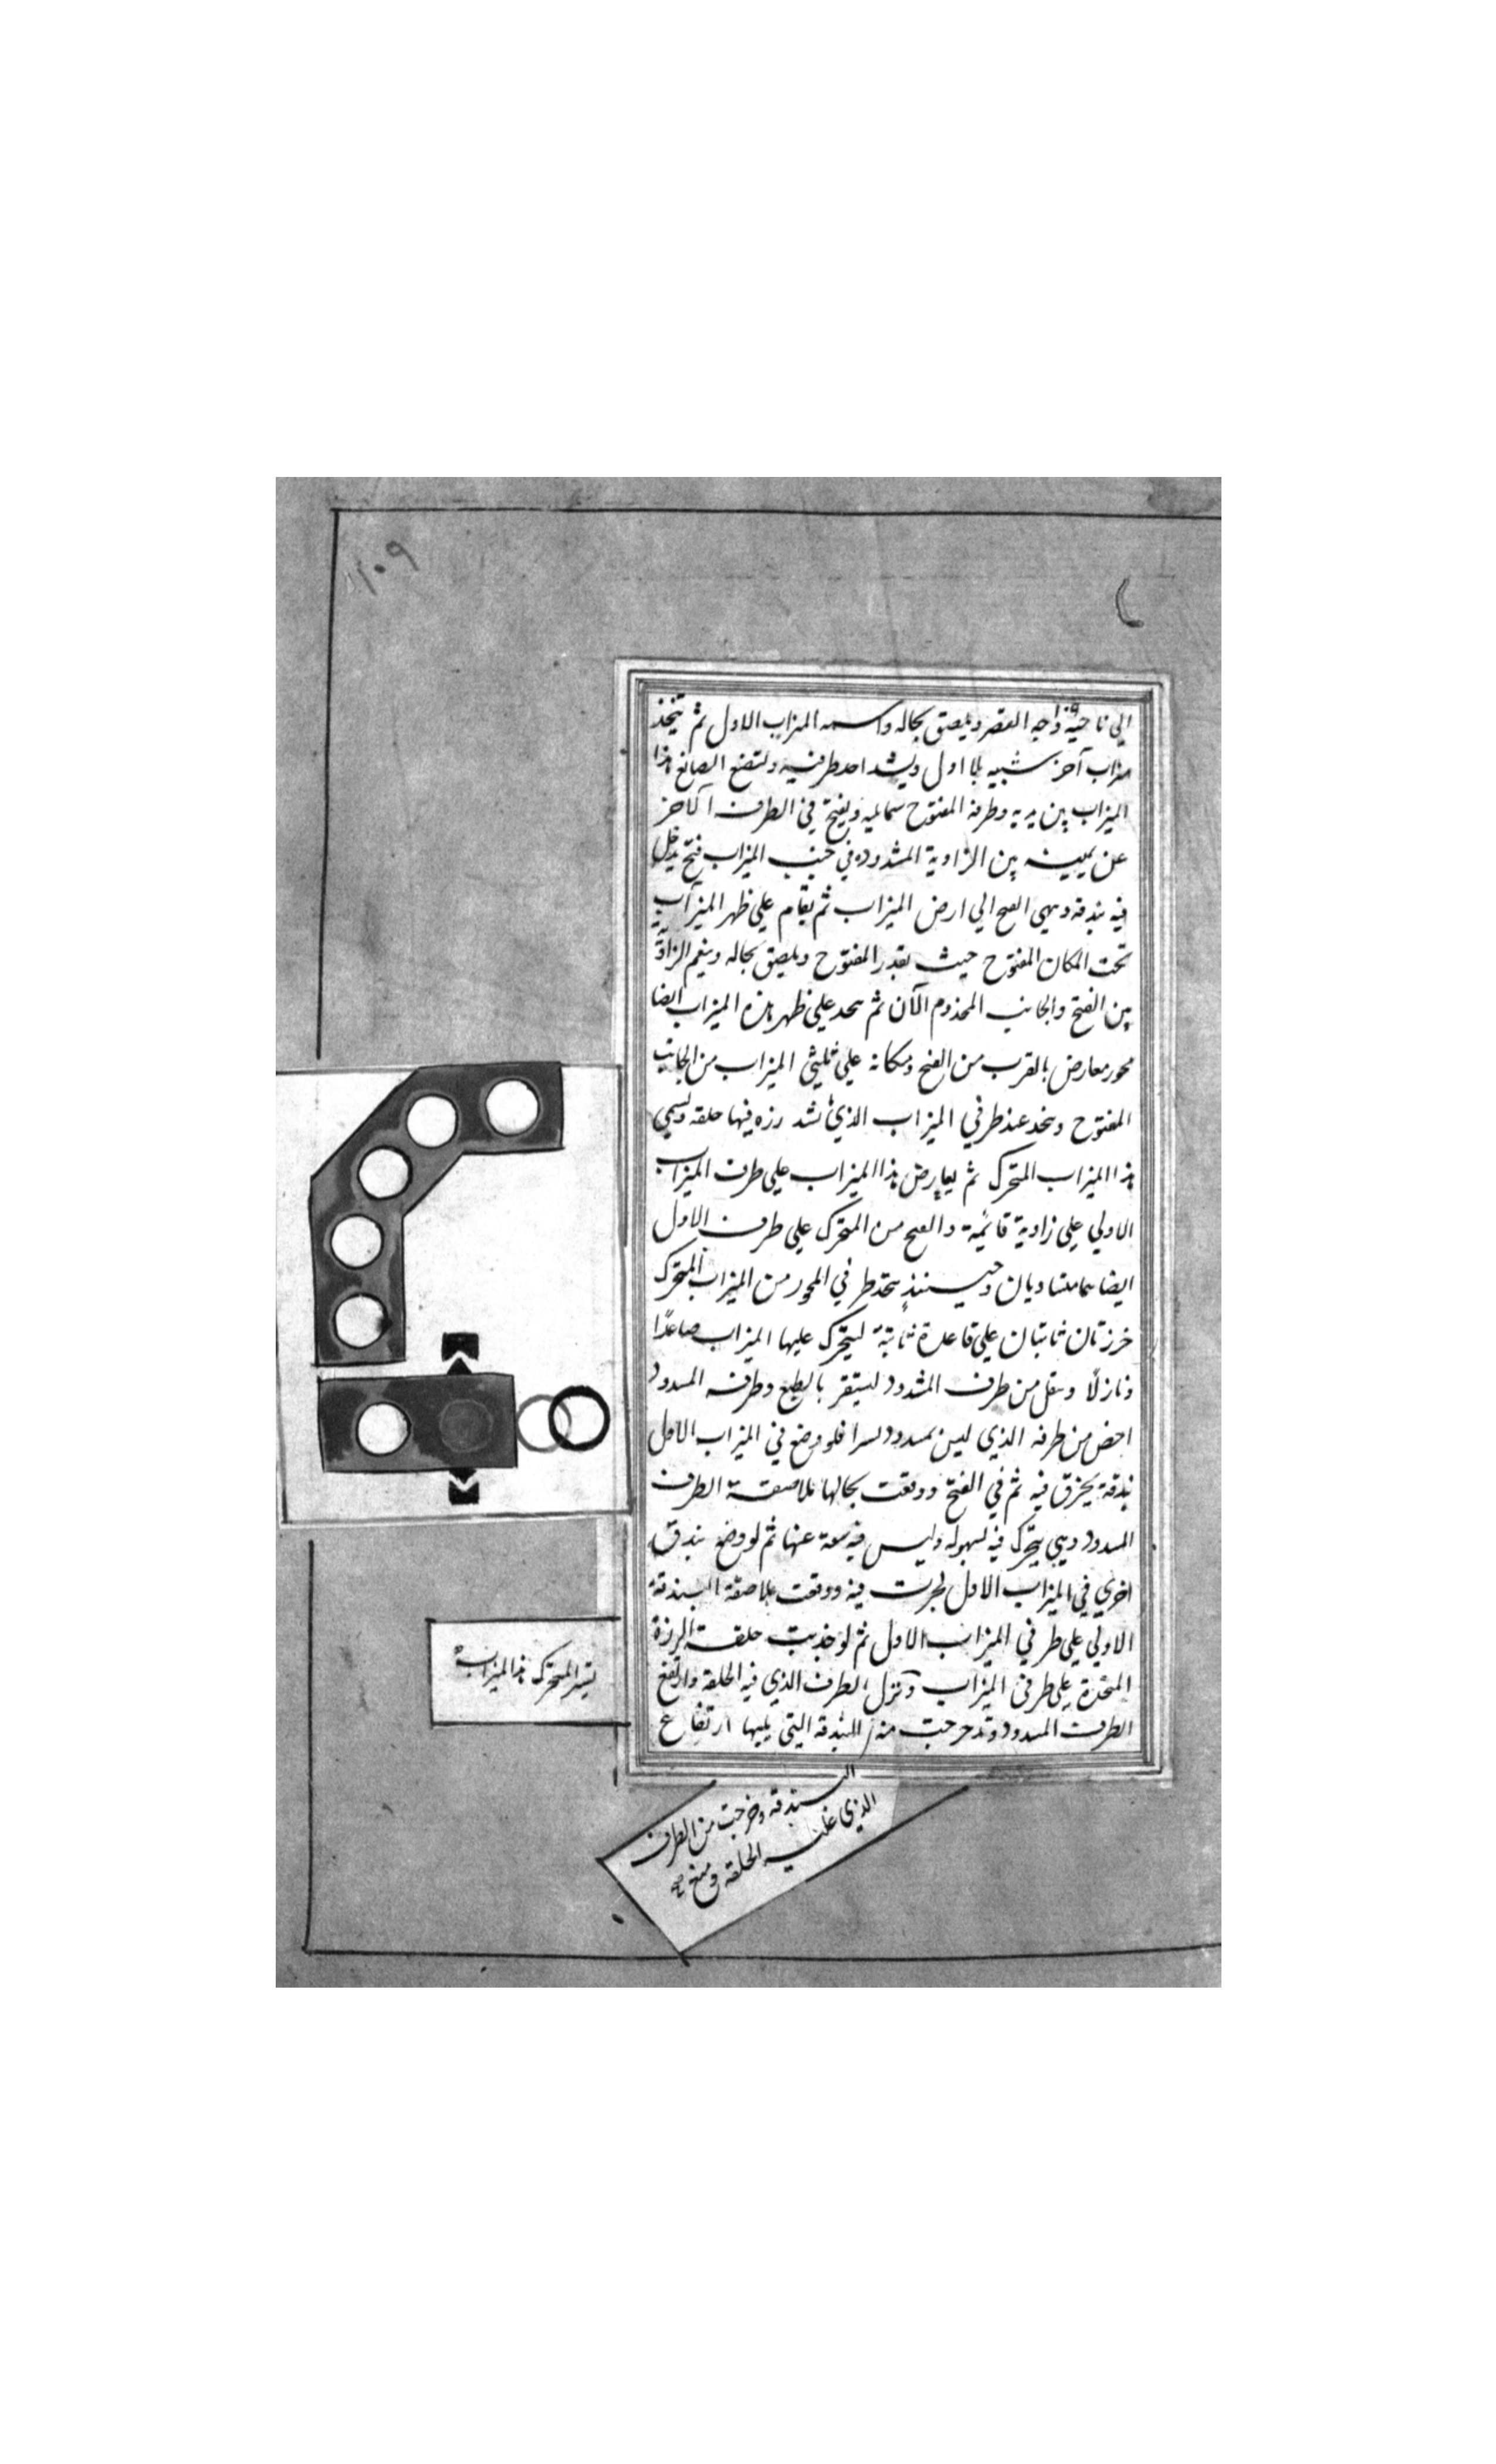 ١٠٩
الي ناحية واجه القصر ويلصق بحاله واسمه الميزاب الاول ثم يتخذ
ميزاب آخر شبيه بلا اول ويشد احد طرفيه وليضع الصانع هذا
الميزاب بين يديه وطرفه المفتوح شماليه ويفتح في الطرف الآخر
عن يمينه بين الزاوية المشدوده في جنب الميزاب فتح يدخل
فيه بندقه وينهي الفتح الي ارض الميزاب ثم يقام علي ظهر الميزاب
تحت المكان المفتوح حيث بقدر المفتوح ويلصق بحاله الزاوية
بين الفتح والجانب المحذوم الآن ثم علي ظهر هذه الميزاب ايضا
محور معارض بالقرب من الفتح ومكانه علي ثلثي الميزاب من الجانب
المفتوح ويتخذ عند طرفي الميزاب الذي شد رزه فيها حلقه ويسمي
هذا الميزاب المتحرك ثم يعارض هذا الميزاب علي طرف الميزاب
الاولي علي زاوية قائمة والفتح من المتحرك علي طرف الاول
ايضا متساويان وحينئذ يتخذ طرفي المحور من الميزاب المتحرك
خرزتان ثابتان علي قاعدة ثابتة ليتحرك عليها الميزاب صاعدًا
ونازلًا من طرف المشدود ليستقر بالطبع وطرفه المسدود
اخفض من طرفه الذي ليس بمسدود فلو وضع في الميزاب الاول
بندقة فيه ثم في الفتح ووقعت بحالها ملاصقة الطرف
المسدود وهي يتحرك فيه لسهوله وليس فيه سعة عنها ثم لو وضع بندق
اخري في الميزاب الاول لجرت فيه ووقعت ملاصقة البندقة
الاولي علي طرفي الميزاب الاول ثم لو جذبت حلقة الرزة
المتخذة علي طرفي الميزاب ونزل الطرف الذي فيه الحلقة وارتفع
الطرف المسدود وتدحرجت منه البندقة التي يليها ارتفاع
البندقه وخرجت من الطرف
الذي عليه الحلقة ومنع
المتحرك هذا الميزاب